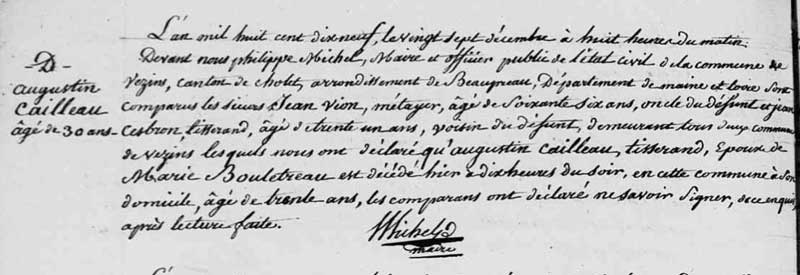 L'an mil huit cent dix neuf, le vingt sept décembre à huit heures du matin.
Devant nous philippe Michel, Maire et officier public de l'état civil de la commune de
D
augustin
Cailleau
âgé de 30 ans
Vezins, canton de cholet, arrondissement de Beaupreau, Département de maine et loire sont
comparus les sieurs Jean Vion, métayer, âgé de soixante six ans, oncle du défunt et jean
Cesbron tisserand, âgé de trente un ans, voisin du défunt, demeurant tous deux commune
de vezins lesquels nous ont déclaré qu'augustin Cailleau, tisserand, Epoux de
Marie Bouletreau est décédé hier à dix heures du soir, en cette commune à son
domicile, âgé de trente ans, les comparans ont déclaré ne savoir signer, de ce enquis,
après lecture faite.
Michel
maire
L'an